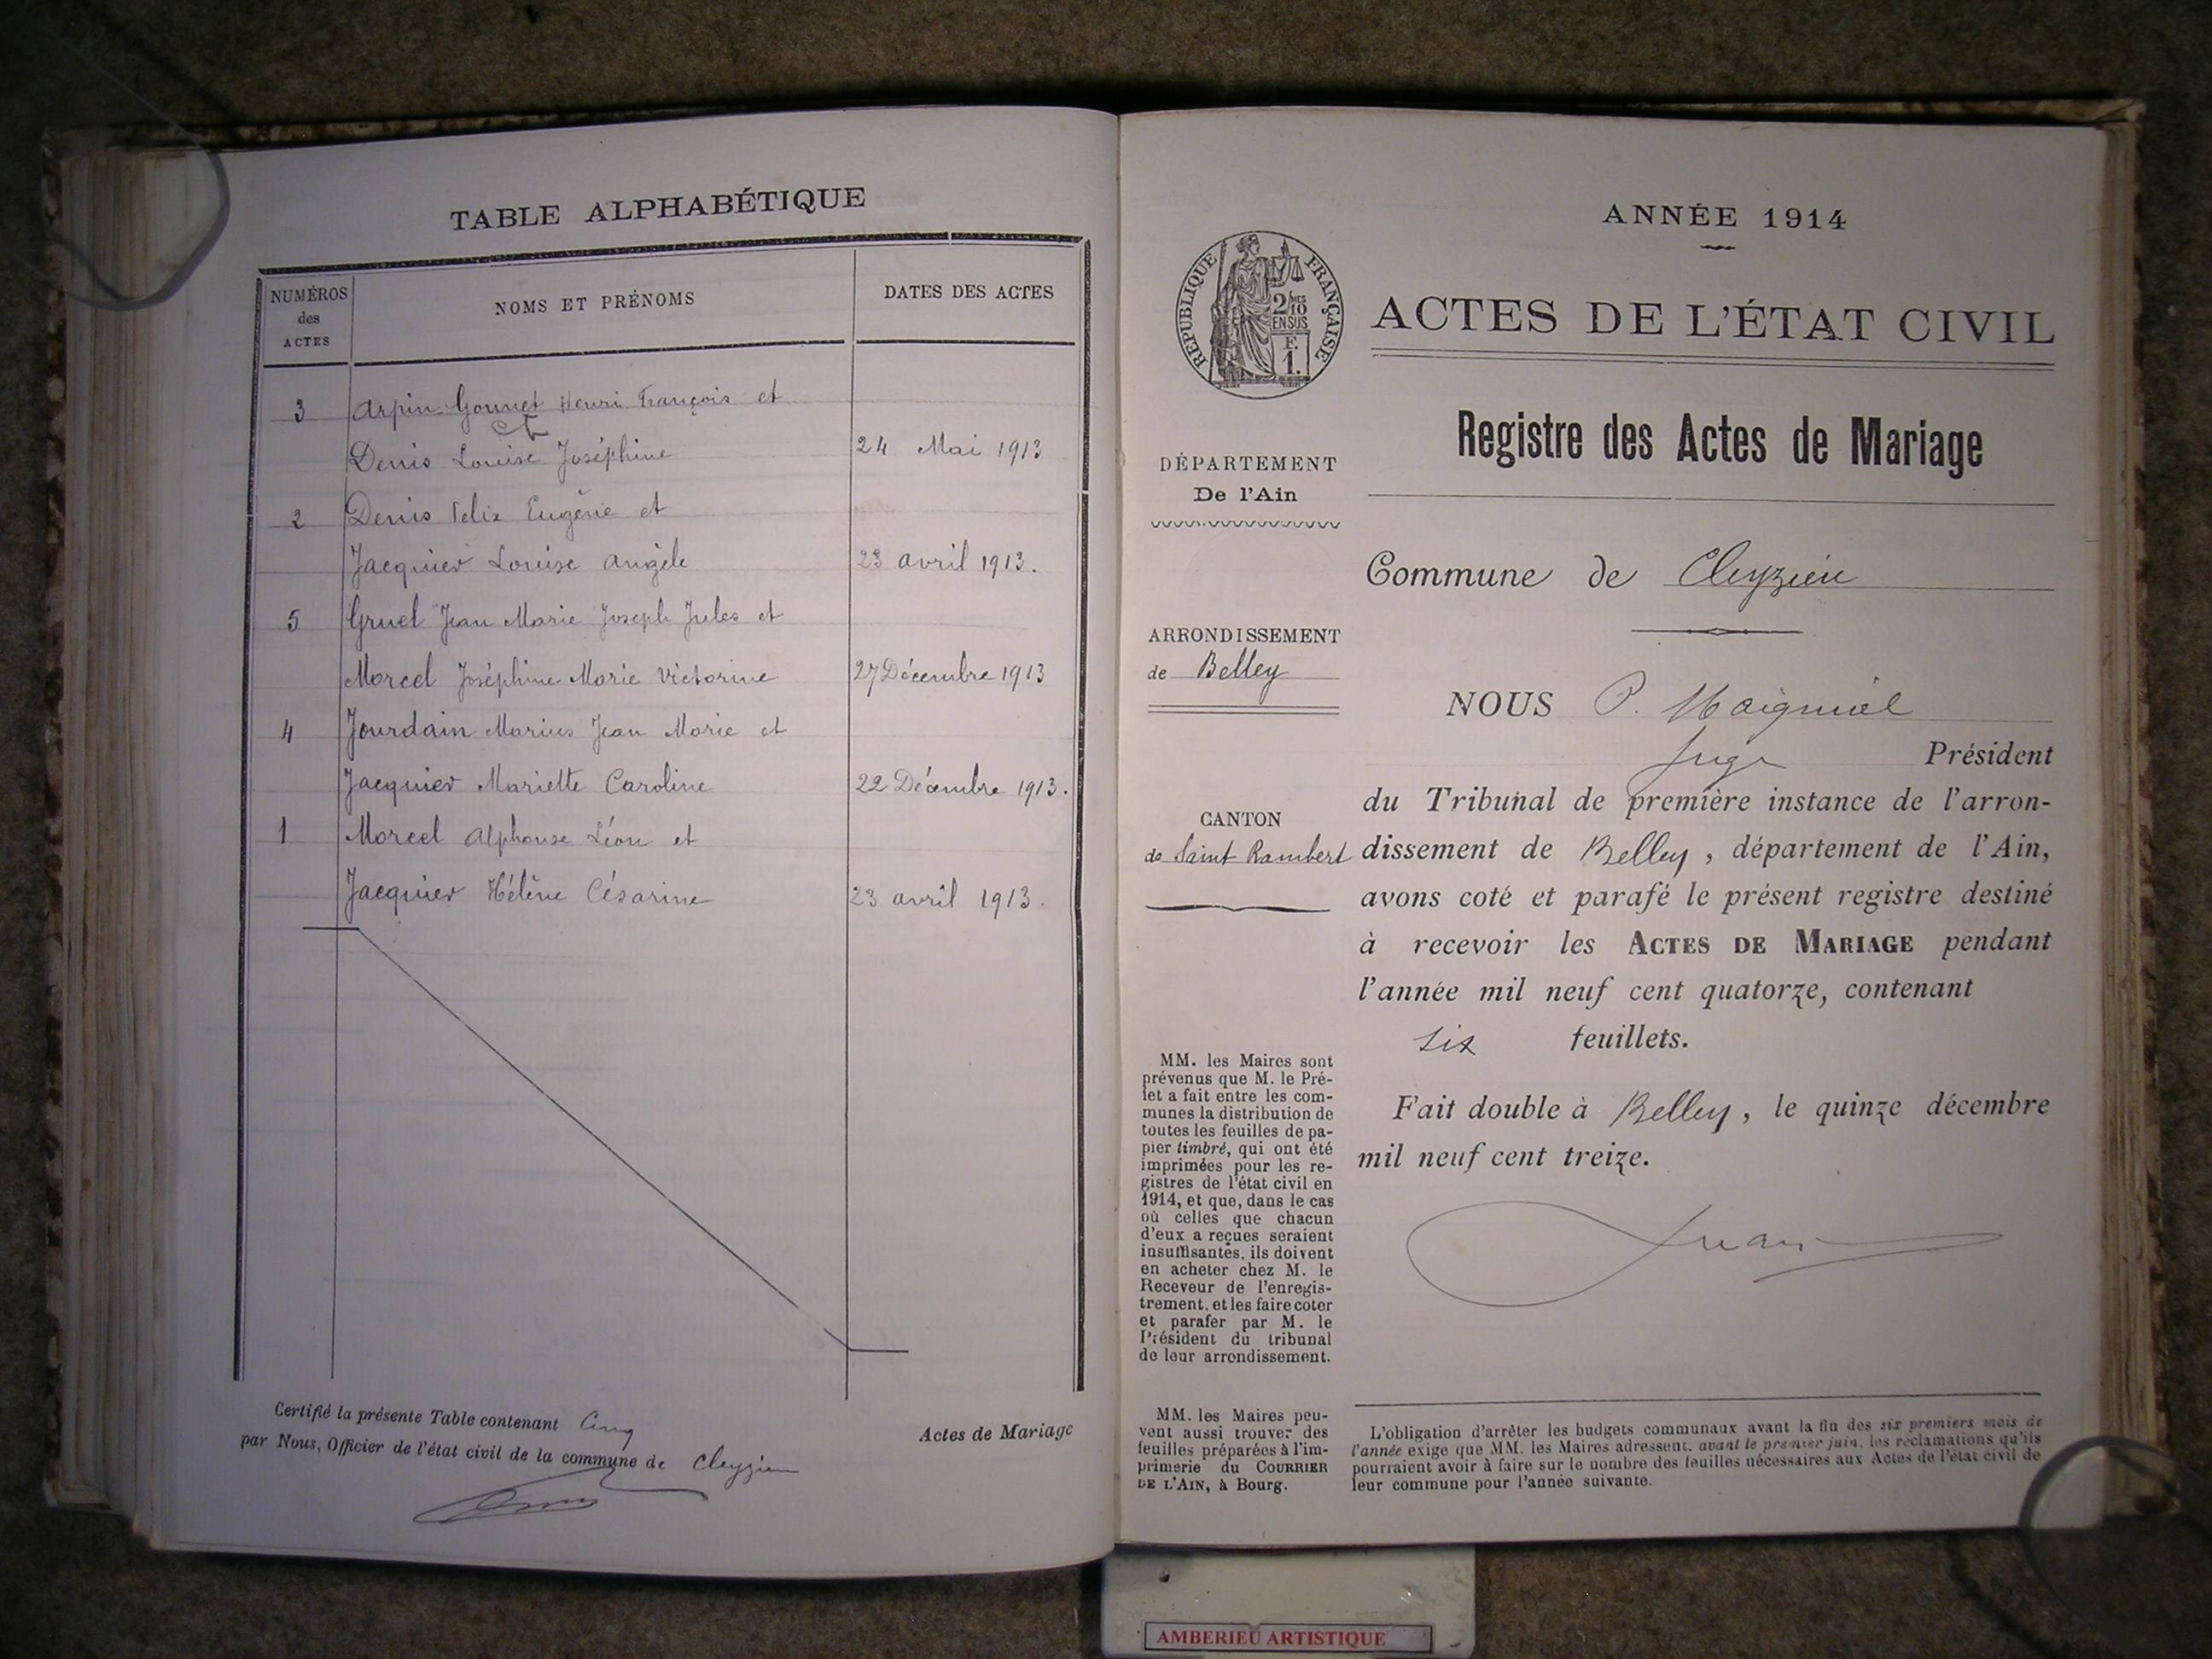 TABLE ALPHABÉTIQUE
NUMÉROS
des
ACTES
NOMS ET PRÉNOMS
DATES DES ACTES
3 Arpin-Gonnet Henri François et
et
Denis Louise Joséphine 24 Mai 1913
2 Denis Felix Eugène et
Jacquier Louise Angèle 23 avril 1913.
5 Gruel Jean Marie Joseph Jules et
Morcel Joséphine Marie Victorine 27 Décembre 1913
4 Jourdain Marius Jean Marie et
Jacquier Mariette Caroline 22 Décembre 1913.
1 Morcel Alphonse Léon et
Jacquier Hélène Césarine 23 avril 1913.
Certifié la présente Table contenant Cinq
Actes de Mariage
par Nous, Officier de l'état civil de la commune de Cleyzieu
ANNÉE 1914
RÉPUBLIQUE FRANÇAISE
2/10MES
EN SUS
F.
1.
ACTES DE L'ÉTAT CIVIL
Registre des Actes de Mariage
DÉPARTEMENT
De l'Ain
ARRONDISSEMENT
de Belley
CANTON
de Saint Rambert
MM. les Maires sont
prévenus que M. le Pré-
fet a fait entre les com-
munes la distribution de
toutes les feuilles de pa-
pier timbré, qui ont été
imprimées pour les re-
gistres de l'état civil en
1914, et que, dans le cas
où celles que chacun
d'eux a reçues seraient
insuffisantes, ils doivent
en acheter chez M. le
Receveur de l'enregis-
trement, et les faire coter
et parafer par M. le
Président du tribunal
de leur arrondissement.
MM. les Maires peu-
vent aussi trouver des
feuilles préparées à l'im-
primerie du COURRIER
DE L'AIN, à Bourg.
Commune de Cleyzieu
NOUS P.
Juge Président
du Tribunal de première instance de l'arron-
dissement de Belley, département de l'Ain,
avons coté et parafé le présent registre destiné
à recevoir les ACTES DE MARIAGE pendant
l'année mil neuf cent quatorze, contenant
six feuillets.
Fait double à Belley, le quinze décembre
mil neuf cent treize.
L'obligation d'arrêter les budgets communaux avant la fin des six premiers mois de
l'année exige que MM. les Maires adressent, avant le premier juin, les réclamations qu'ils
pourraient avoir à faire sur le nombre des feuilles nécessaires aux Actes de l'état civil de
leur commune pour l'année suivante.
AMBERIEU ARTISTIQUE